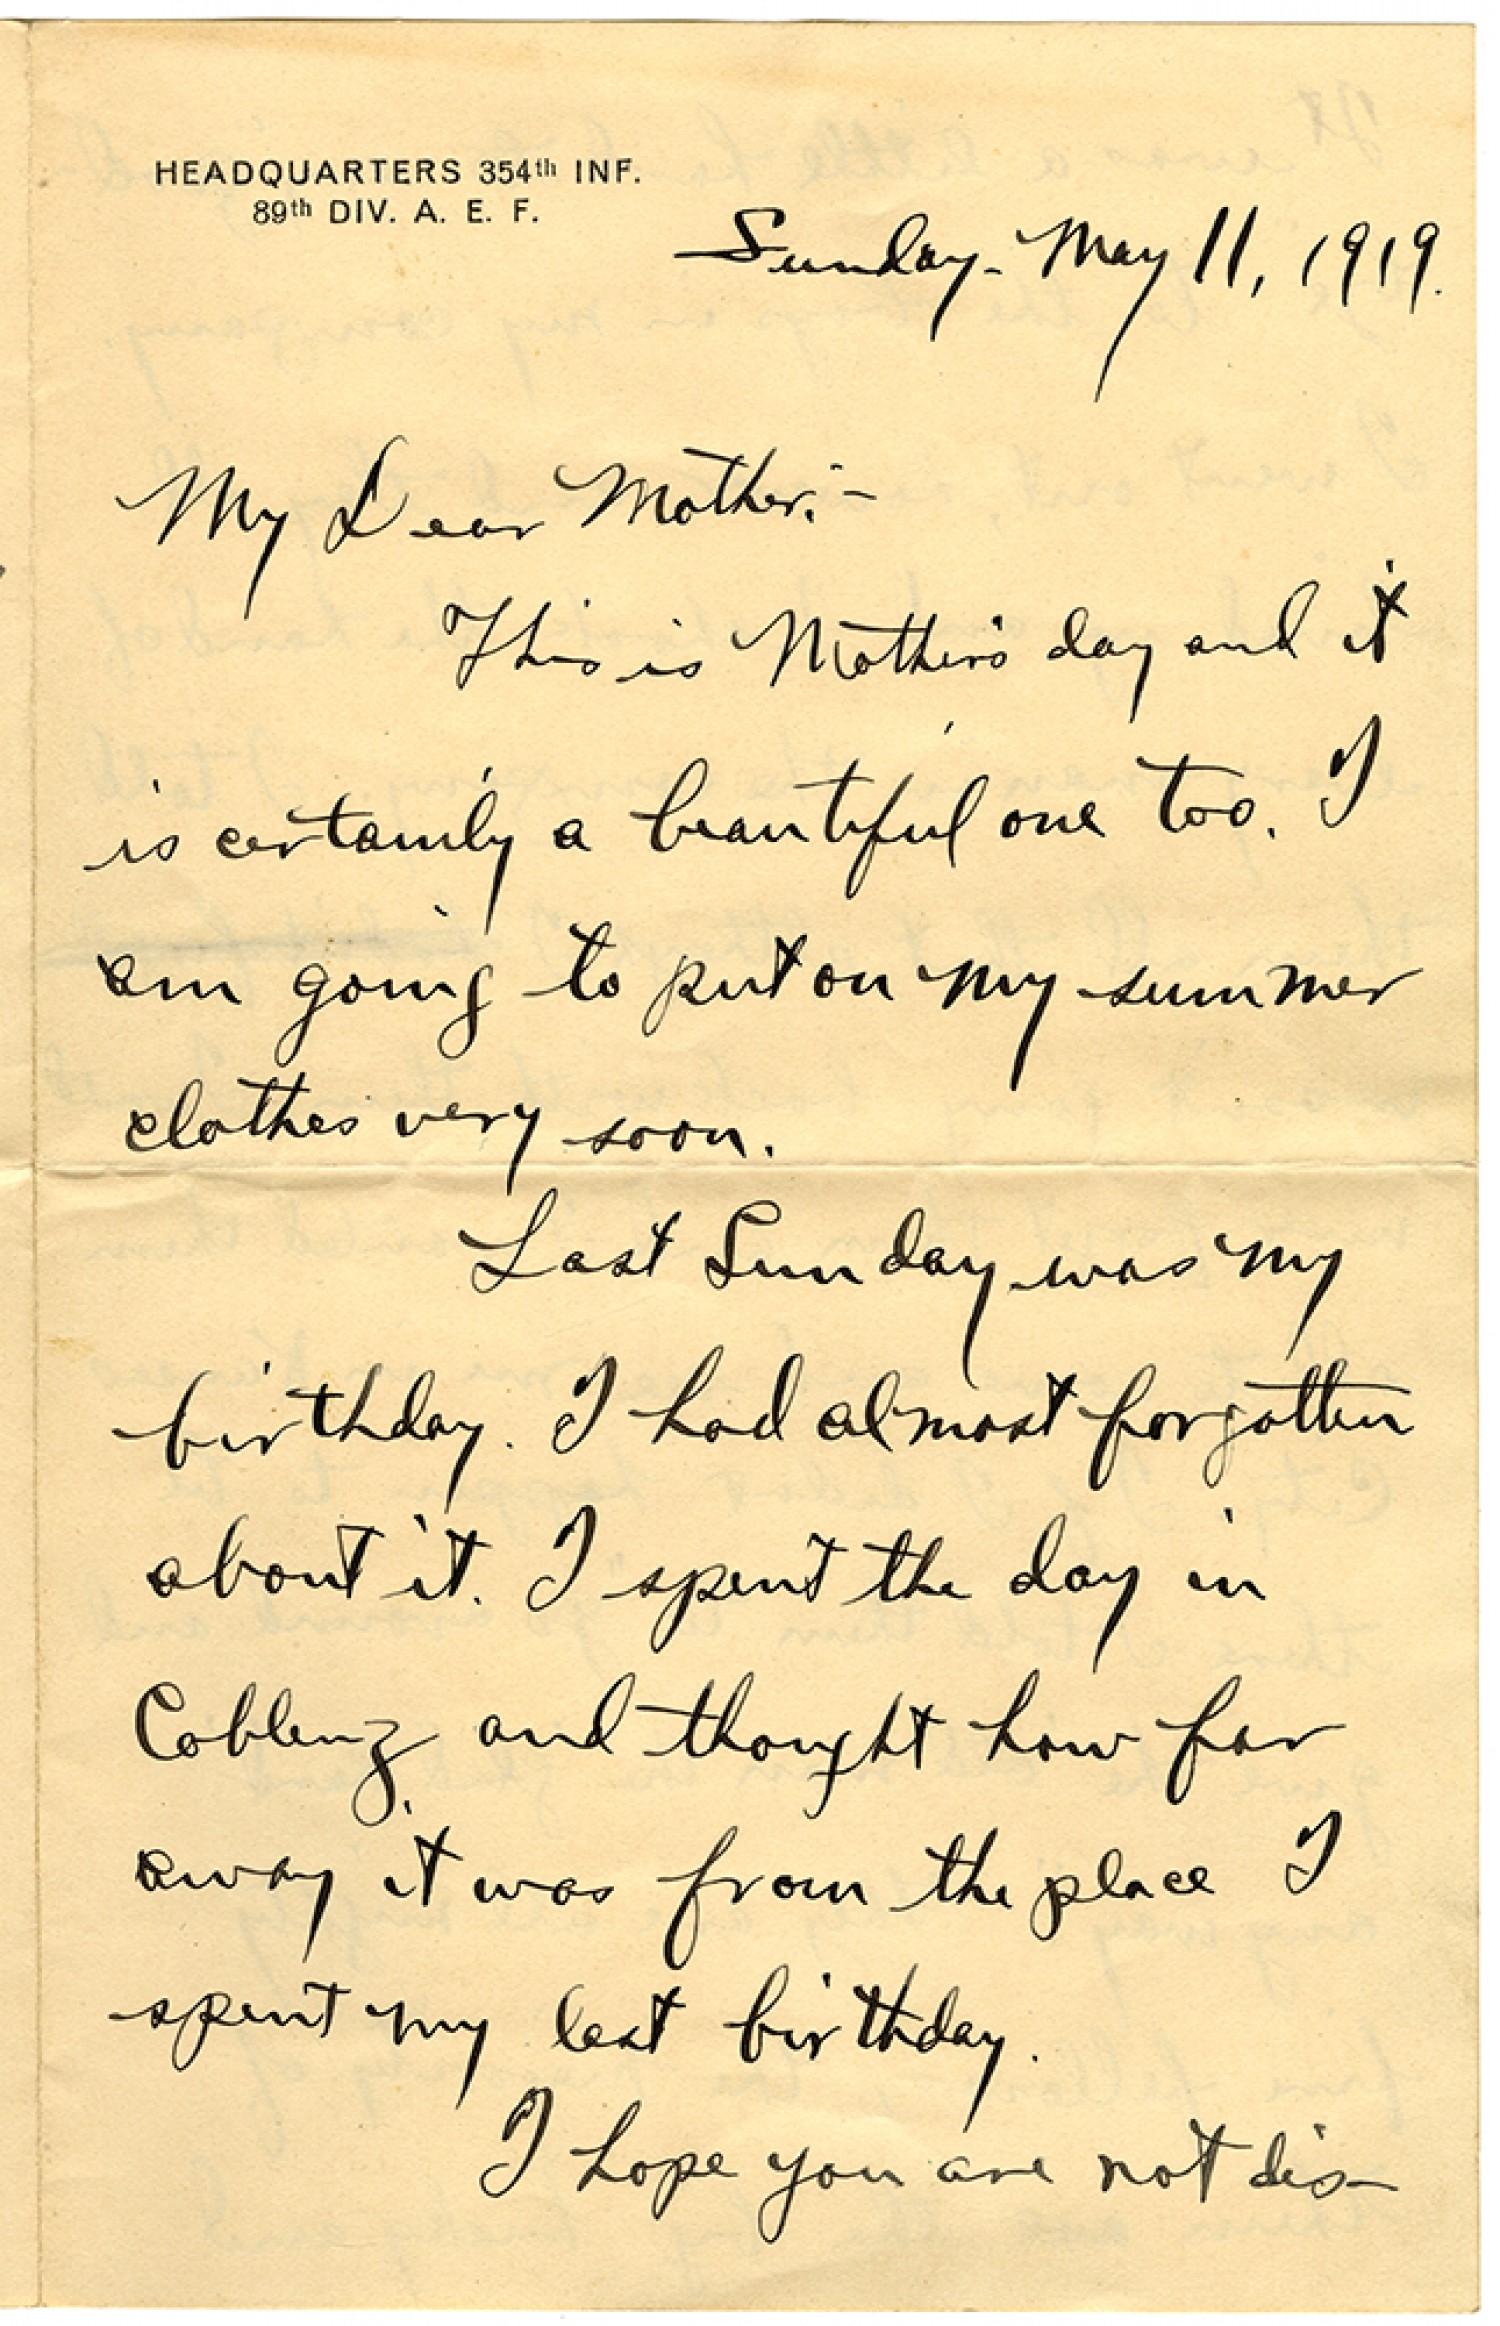 HEADQUARTERS 354th INF.
89th DIV. A. E. F.
Sunday - May 11, 1919.
My Dear Mother:-
This is Mother's day and it
is certainly a beautiful one too. I
am going to put on my summer
clothes very soon.
Last Sunday was my
birthday. I had almost forgotten
about it. I spent the day in
Coblenz and thought how far
away it was from the place I
spent my last birthday.
I hope you are not dis-